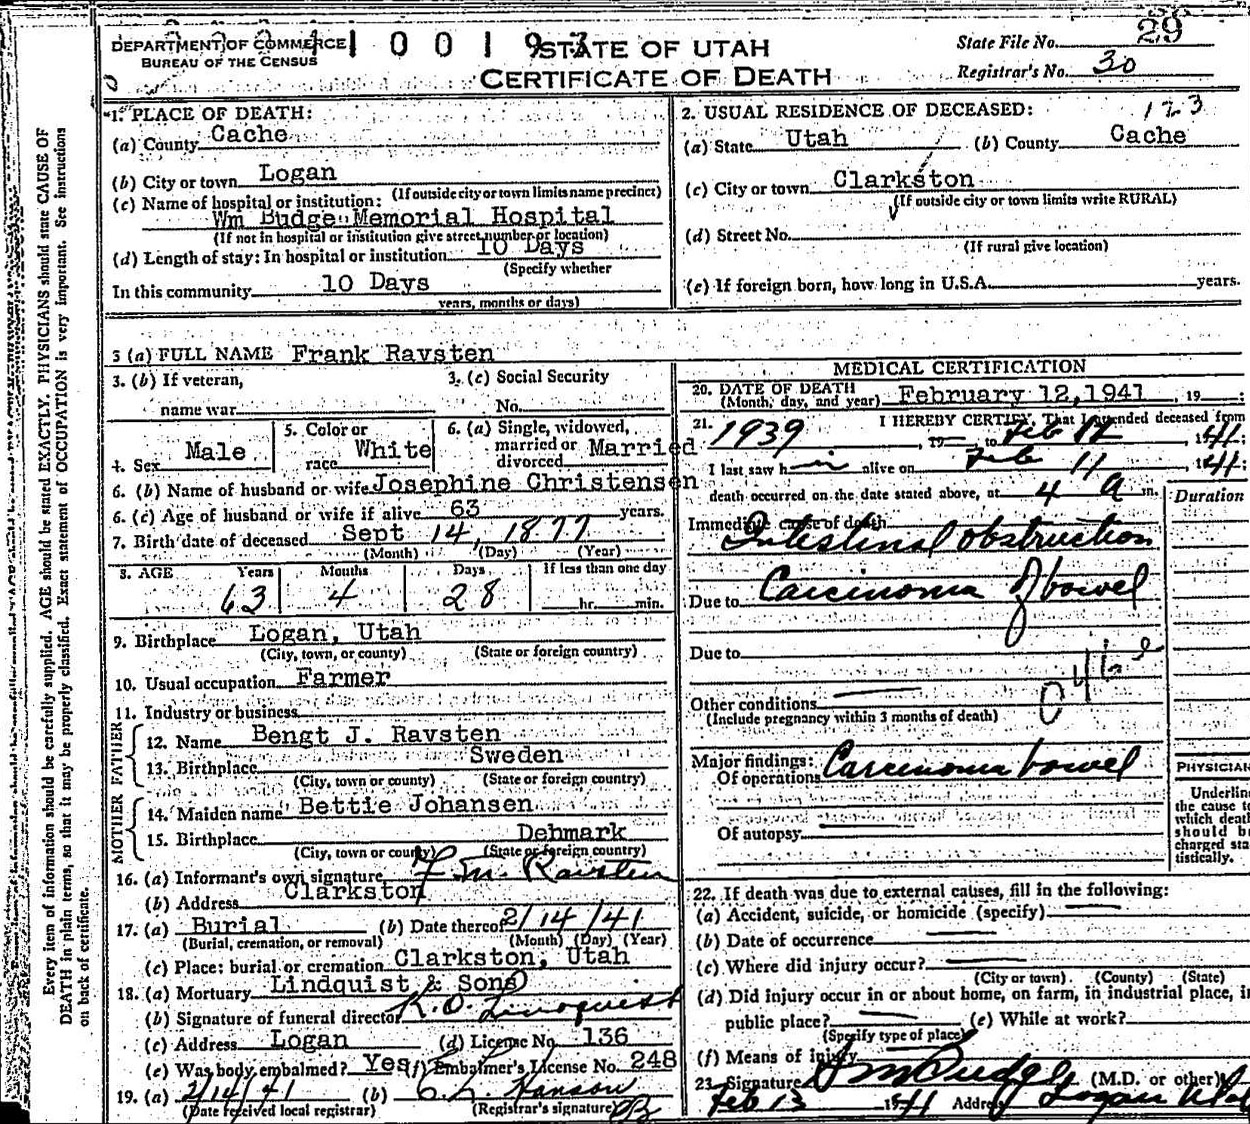 DEPARTMENT OF COMMERCE
BUREAU OF THE CENSUS
STATE OF UTAH
CERTIFICATE OF DEATH
State File No. 29
Registrar's No. 30
1. PLACE OF DEATH:
(a) County Cache
(b) City or town Logan
(If outside city or town limits name precinct)
(c) Name of hospital or institution:
Wm Budge Memorial Hospital
(If not in hospital or institution give street number or location)
(d) Length of stay: In hospital or institution 10 Days
(Specify whether
In this community 10 Days
years, months or days)
2. USUAL RESIDENCE OF DECEASED: 123
(a) State Utah (b) County Cache
(c) City or town Clarkston
(If outside city or town limits write RURAL)
(d) Street No.
(If rural give location)
(e) If foreign born, how long in U.S.A. years.
3 (a) FULL NAME Frank Ravsten
3. (b) If veteran,
name war
3. (c) Social Security
No.
4. Sex Male
5. Color or
race White
6. (a) Single, widowed,
married or
divorced Married
6. (b) Name of husband or wife Josephine Christensen
6. (c) Age of husband or wife if alive 63 years.
7. Birth date of deceased Sept 14, 1877
(Month) (Day) (Year)
8. AGE Years Months Days If less than one day
63 4 28 hr. min.
9. Birthplace Logan, Utah
(City, town, or county) (State or foreign country)
10. Usual occupation Farmer
11. Industry or business
FATHER
12. Name Bengt J. Ravsten
13. Birthplace Sweden
(City, town or county) (State or foreign country)
MOTHER
14. Maiden name Bettie Johansen
15. Birthplace Dehmark
(City, town or county) (State or foreign country)
16. (a) Informant's own signature F. M. Ravsten
(b) Address Clarkston
17. (a) Burial (b) Date thereof 2/14/41
(Burial, cremation, or removal) (Month) (Day) (Year)
(c) Place: burial or cremation Clarkston, Utah
18. (a) Mortuary Lindquist & Sons
(b) Signature of funeral director K. O. Lindquist
(c) Address Logan (d) License No. 136
(e) Was body embalmed? Yes (f) Embalmer's License No. 248
19. (a) 2/14/41 (b) C. L. Hanson
(Date received local registrar) (Registrar's signature)
MEDICAL CERTIFICATION
20. DATE OF DEATH
(Month, day, and year) February 12, 1941, 19
21. I HEREBY CERTIFY, That I attended deceased from
1939, 19 to Feb 12, 1941;
I last saw him alive on Feb 11, 1941;
death occurred on the date stated above, at 4 a m.
Duration
Immediate cause of death
Intestinal obstruction
Due to Carcinoma of bowel
Due to
046
Other conditions
(Include pregnancy within 3 months of death)
Major findings:
Of operations Carcinoma bowel
Of autopsy
PHYSICIAN
Underline
the cause to
which death
should be
charged sta
tistically.
22. If death was due to external causes, fill in the following:
(a) Accident, suicide, or homicide (specify)
(b) Date of occurrence
(c) Where did injury occur?
(City or town) (County) (State)
(d) Did injury occur in or about home, on farm, in industrial place, in
public place? (e) While at work?
(Specify type of place)
(f) Means of injury
23. Signature Wm Budge (M.D. or other)
Feb 13 1941 Address Logan Utah
Every item of information should be carefully supplied. AGE should be stated EXACTLY. PHYSICIANS should state CAUSE OF
DEATH in plain terms, so that it may be properly classified. Exact statement of OCCUPATION is very important. See instructions
on back of certificate.